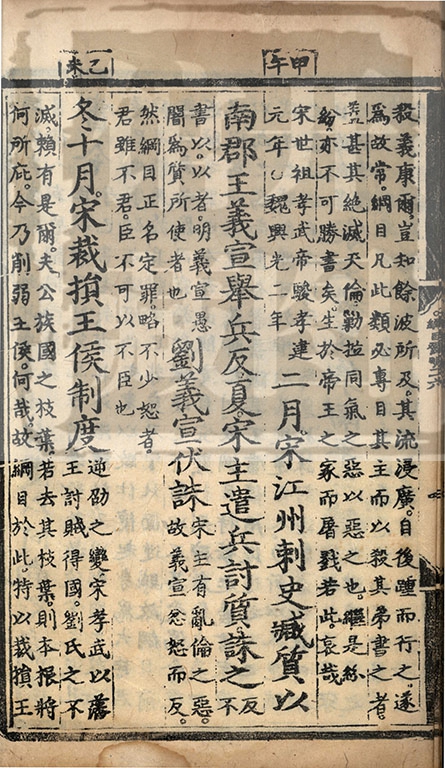 甲午
乙未
殺義康爾。豈知餘波所及。其流浸廣。自後踵而行之。遂
為故常。綱目凡此類必專目其主而以殺其弟書之者。
若甚其絕滅天倫。勦拉同氣之惡以惡之也。繼是紛
紛。亦不可勝書矣。生於帝王之家而屠戮若此。哀哉
宋世祖孝武帝駿孝建
元年○魏興光二年
二月宋江州刺史臧質以
南郡王義宣舉兵反。夏。宋主遣兵討質誅之
反
不
書以。以者。明義宣愚
闇為質所使者也
劉義宣伏誅
宋主有亂倫之惡。
故義宣忿怒而反。
然綱目正名定罪。略不少恕者。
君雖不君。臣不可以不臣也
冬十月。宋裁損王侯制度
逆劭之變。宋孝武以藩
王討賊得國。劉氏之不
滅。賴有是爾。夫公族國之枝葉。若去其枝葉。則本根將
何所庇。今乃削弱王侯。何哉。故綱目於此。特以裁損王